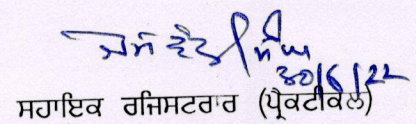 30/6/22
ਸਹਾਇਕ ਰਜਿਸਟਰਾਰ (ਪ੍ਰੈਕਟੀਕਲ)